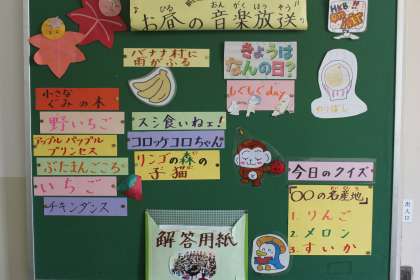 お昼の音楽放送
ひる おんがくほうそう
HKB
バナナ村に
雨がふる
きょうは
なんの日?
もぐもぐday
小さな
ぐみの木
野いちご
アップルパップル
プリンセス
ぶたまんごころ
いちご
チキンダンス
スシ食いねェ!
コロッケロコちゃん
リンゴの森の
子猫
今日のクイズ
「〇〇の名産地」
1. りんご
2. メロン
3. すいか
解答用紙
出入口